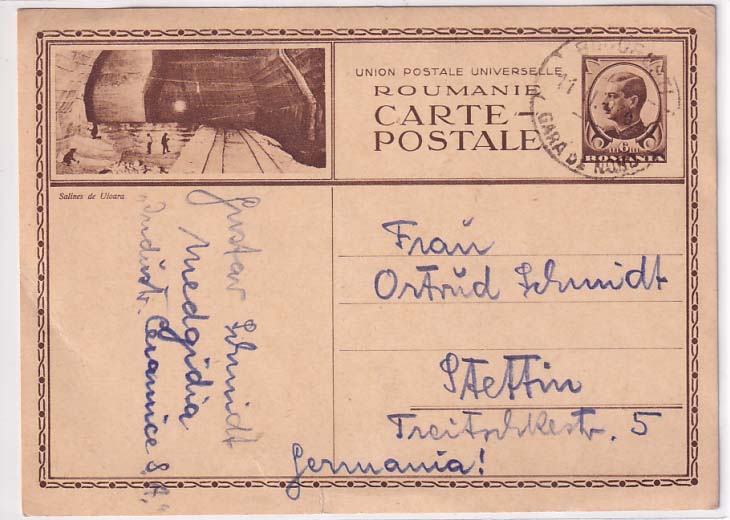 UNION POSTALE UNIVERSELLE
ROUMANIE
CARTE-
POSTALE
GARA DE NORD
6
ROMANIA
Salines de Uioara
Gustav Schmidt
Medgidia
"Industr. Ceramice S.A."
Frau
Ortrud Schmidt
Stettin
Treitschkestr. 5
Germania!